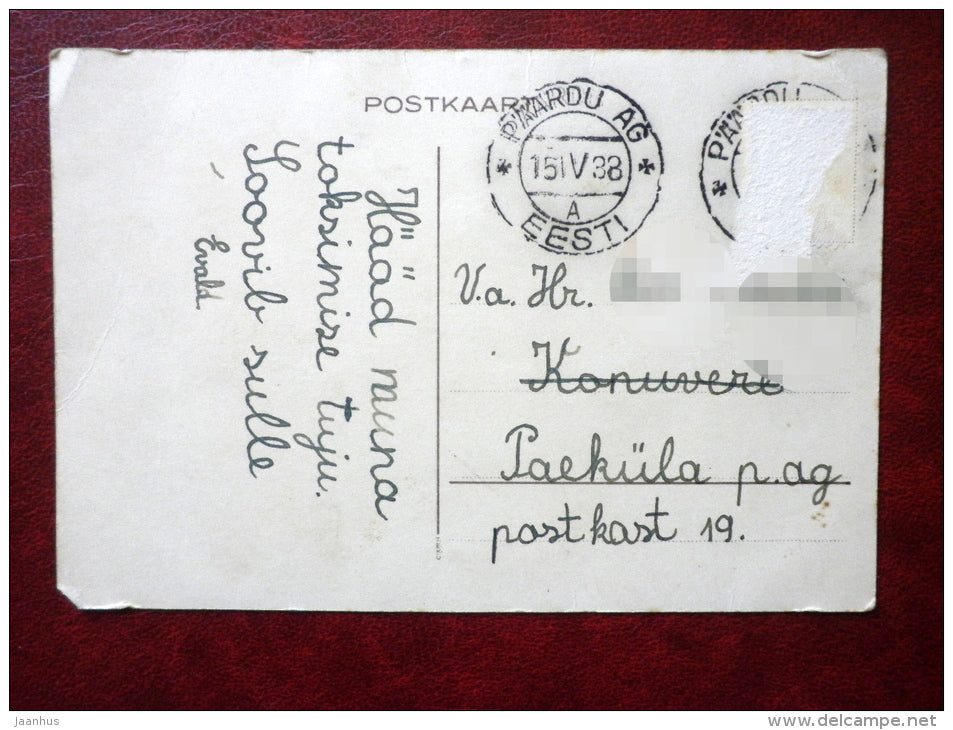 POSTKAART
PÄÄRDU AG
15 IV 38
A
EESTI
PÄÄRDU
Hääd muna
toksimise tuju.
Soovib sulle
Evald
V.a. Hr.
Konuvere
Paeküla p.ag.
postkast 19.
Jaanhus
www.delcampe.net